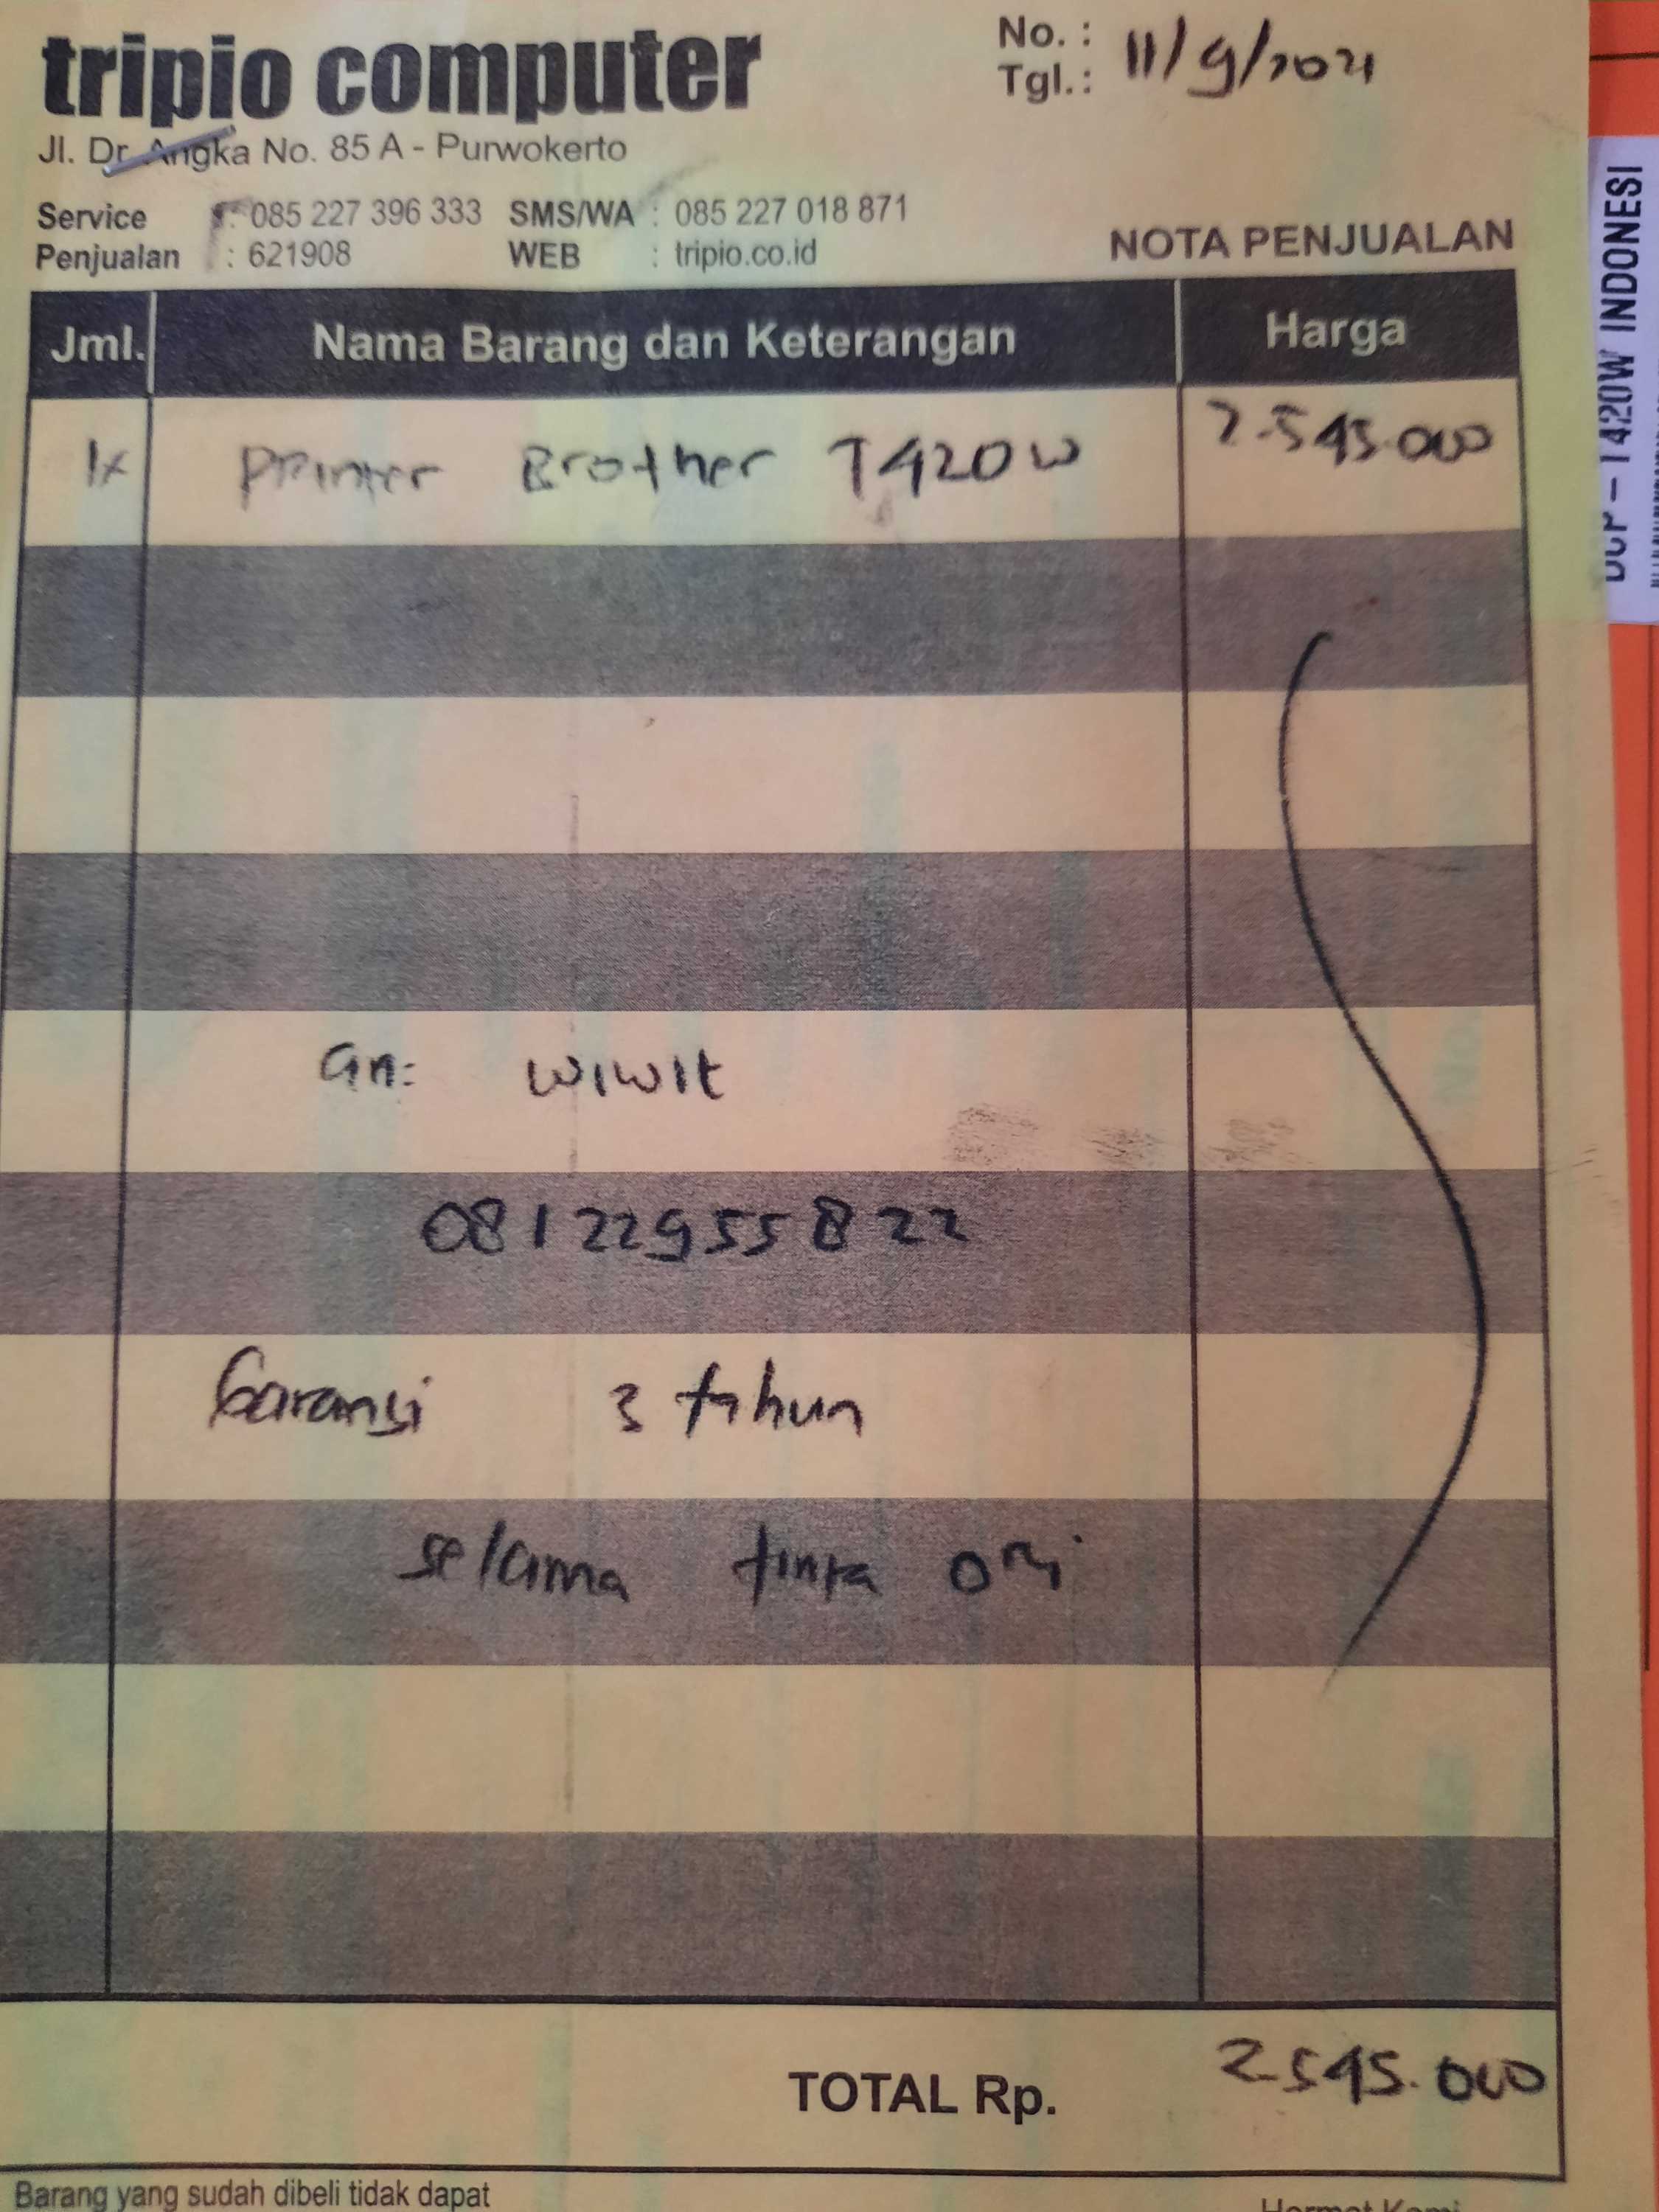 tripio computer
Jl. Dr. Angka No. 85 A - Purwokerto
Service : 085 227 396 333 SMS/WA : 085 227 018 871
Penjualan : 621908 WEB : tripio.co.id
No. :
Tgl. : 11/9/2021
NOTA PENJUALAN
Jml. Nama Barang dan Keterangan Harga
1x Printer Brother T420W 2.545.000
an: wiwit
08122955822
Garansi 3 tahun
selama tinta ori
TOTAL Rp. 2.545.000
Barang yang sudah dibeli tidak dapat
Hormat Kami
DCP-T420W INDONESI